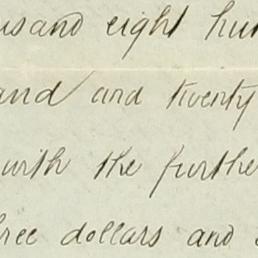 usand eight hun
and and twenty
with the further
hree dollars and